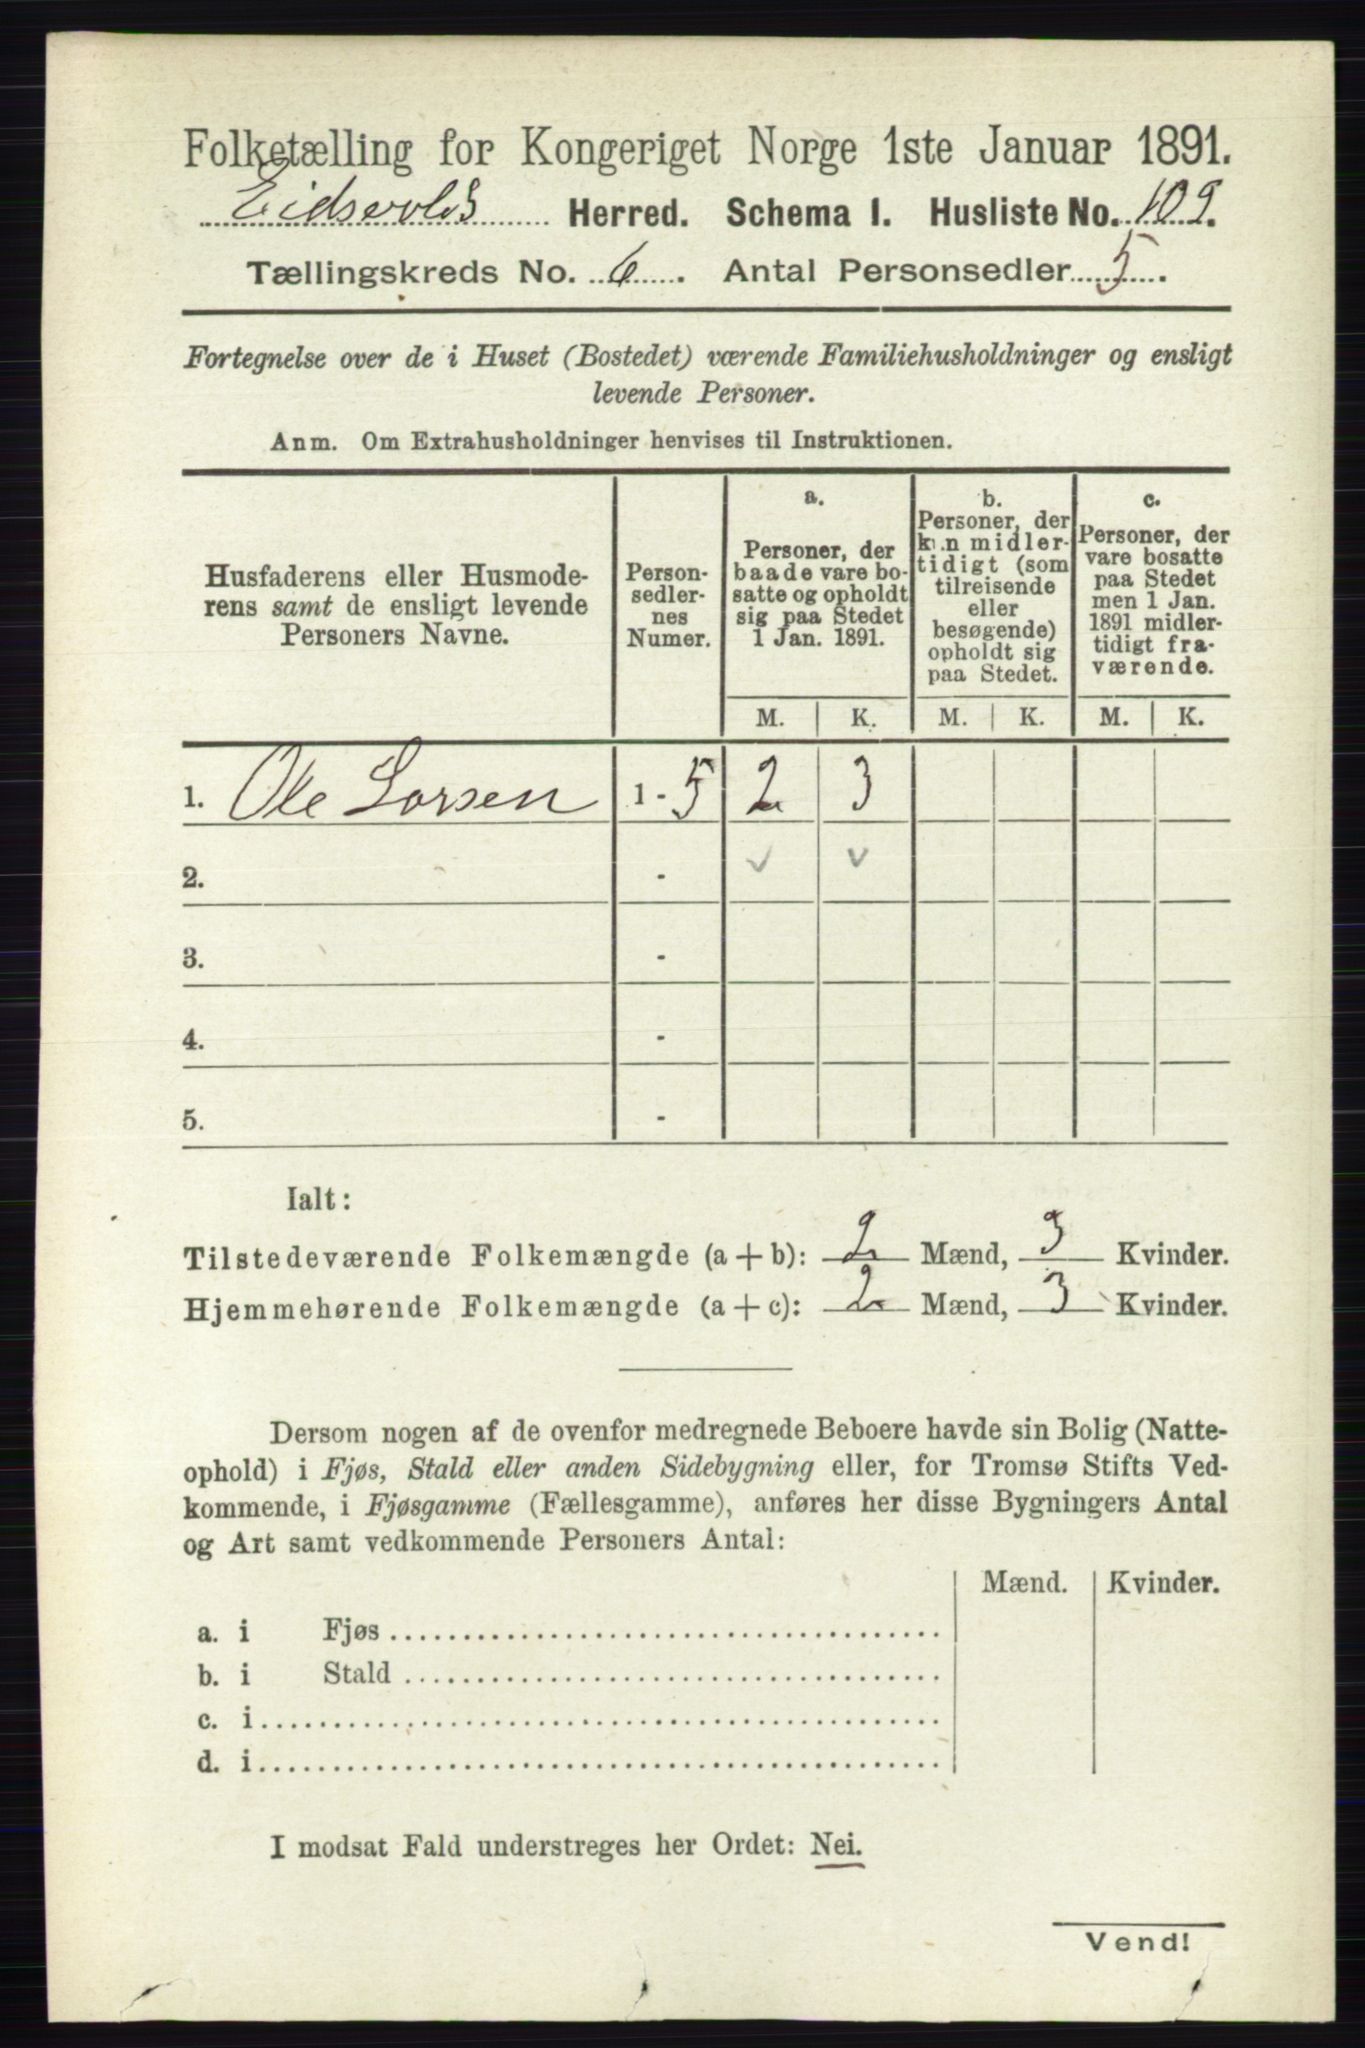 Folketælling for Kongeriget Norge 1ste Januar 1891.
Eidsvolds Herred. Schema I. Husliste No. 109.
Tællingskreds No. 6. Antal Personsedler 5.
Fortegnelse over de i Huset (Bostedet) værende Familiehusholdninger og ensligt
levende Personer.
Anm. Om Extrahusholdninger henvises til Instruktionen.
Husfaderens eller Husmode-
rens samt de ensligt levende
Personers Navne.
Person-
sedler-
nes
Numer.
a.
Personer, der
baade vare bo-
satte og opholdt
sig paa Stedet
1 Jan. 1891.
b.
Personer, der
kun midler-
tidigt (som
tilreisende
eller
besøgende)
opholdt sig
paa Stedet.
c.
Personer, der
vare bosatte
paa Stedet
men 1 Jan.
1891 midler-
tidigt fra-
værende.
M. K. M. K. M. K.
1. Ole Larsen 1 - 5 2 3
2. -
3. -
4. -
5. -
Ialt:
Tilstedeværende Folkemængde (a + b): 2 Mænd, 3 Kvinder.
Hjemmehørende Folkemængde (a + c): 2 Mænd, 3 Kvinder.
Dersom nogen af de ovenfor medregnede Beboere havde sin Bolig (Natte-
ophold) i Fjøs, Stald eller anden Sidebygning eller, for Tromsø Stifts Ved-
kommende, i Fjøsgamme (Fællesgamme), anføres her disse Bygningers Antal
og Art samt vedkommende Personers Antal:
Mænd. Kvinder.
a. i Fjøs
b. i Stald
c. i
d. i
I modsat Fald understreges her Ordet: Nei.
Vend!